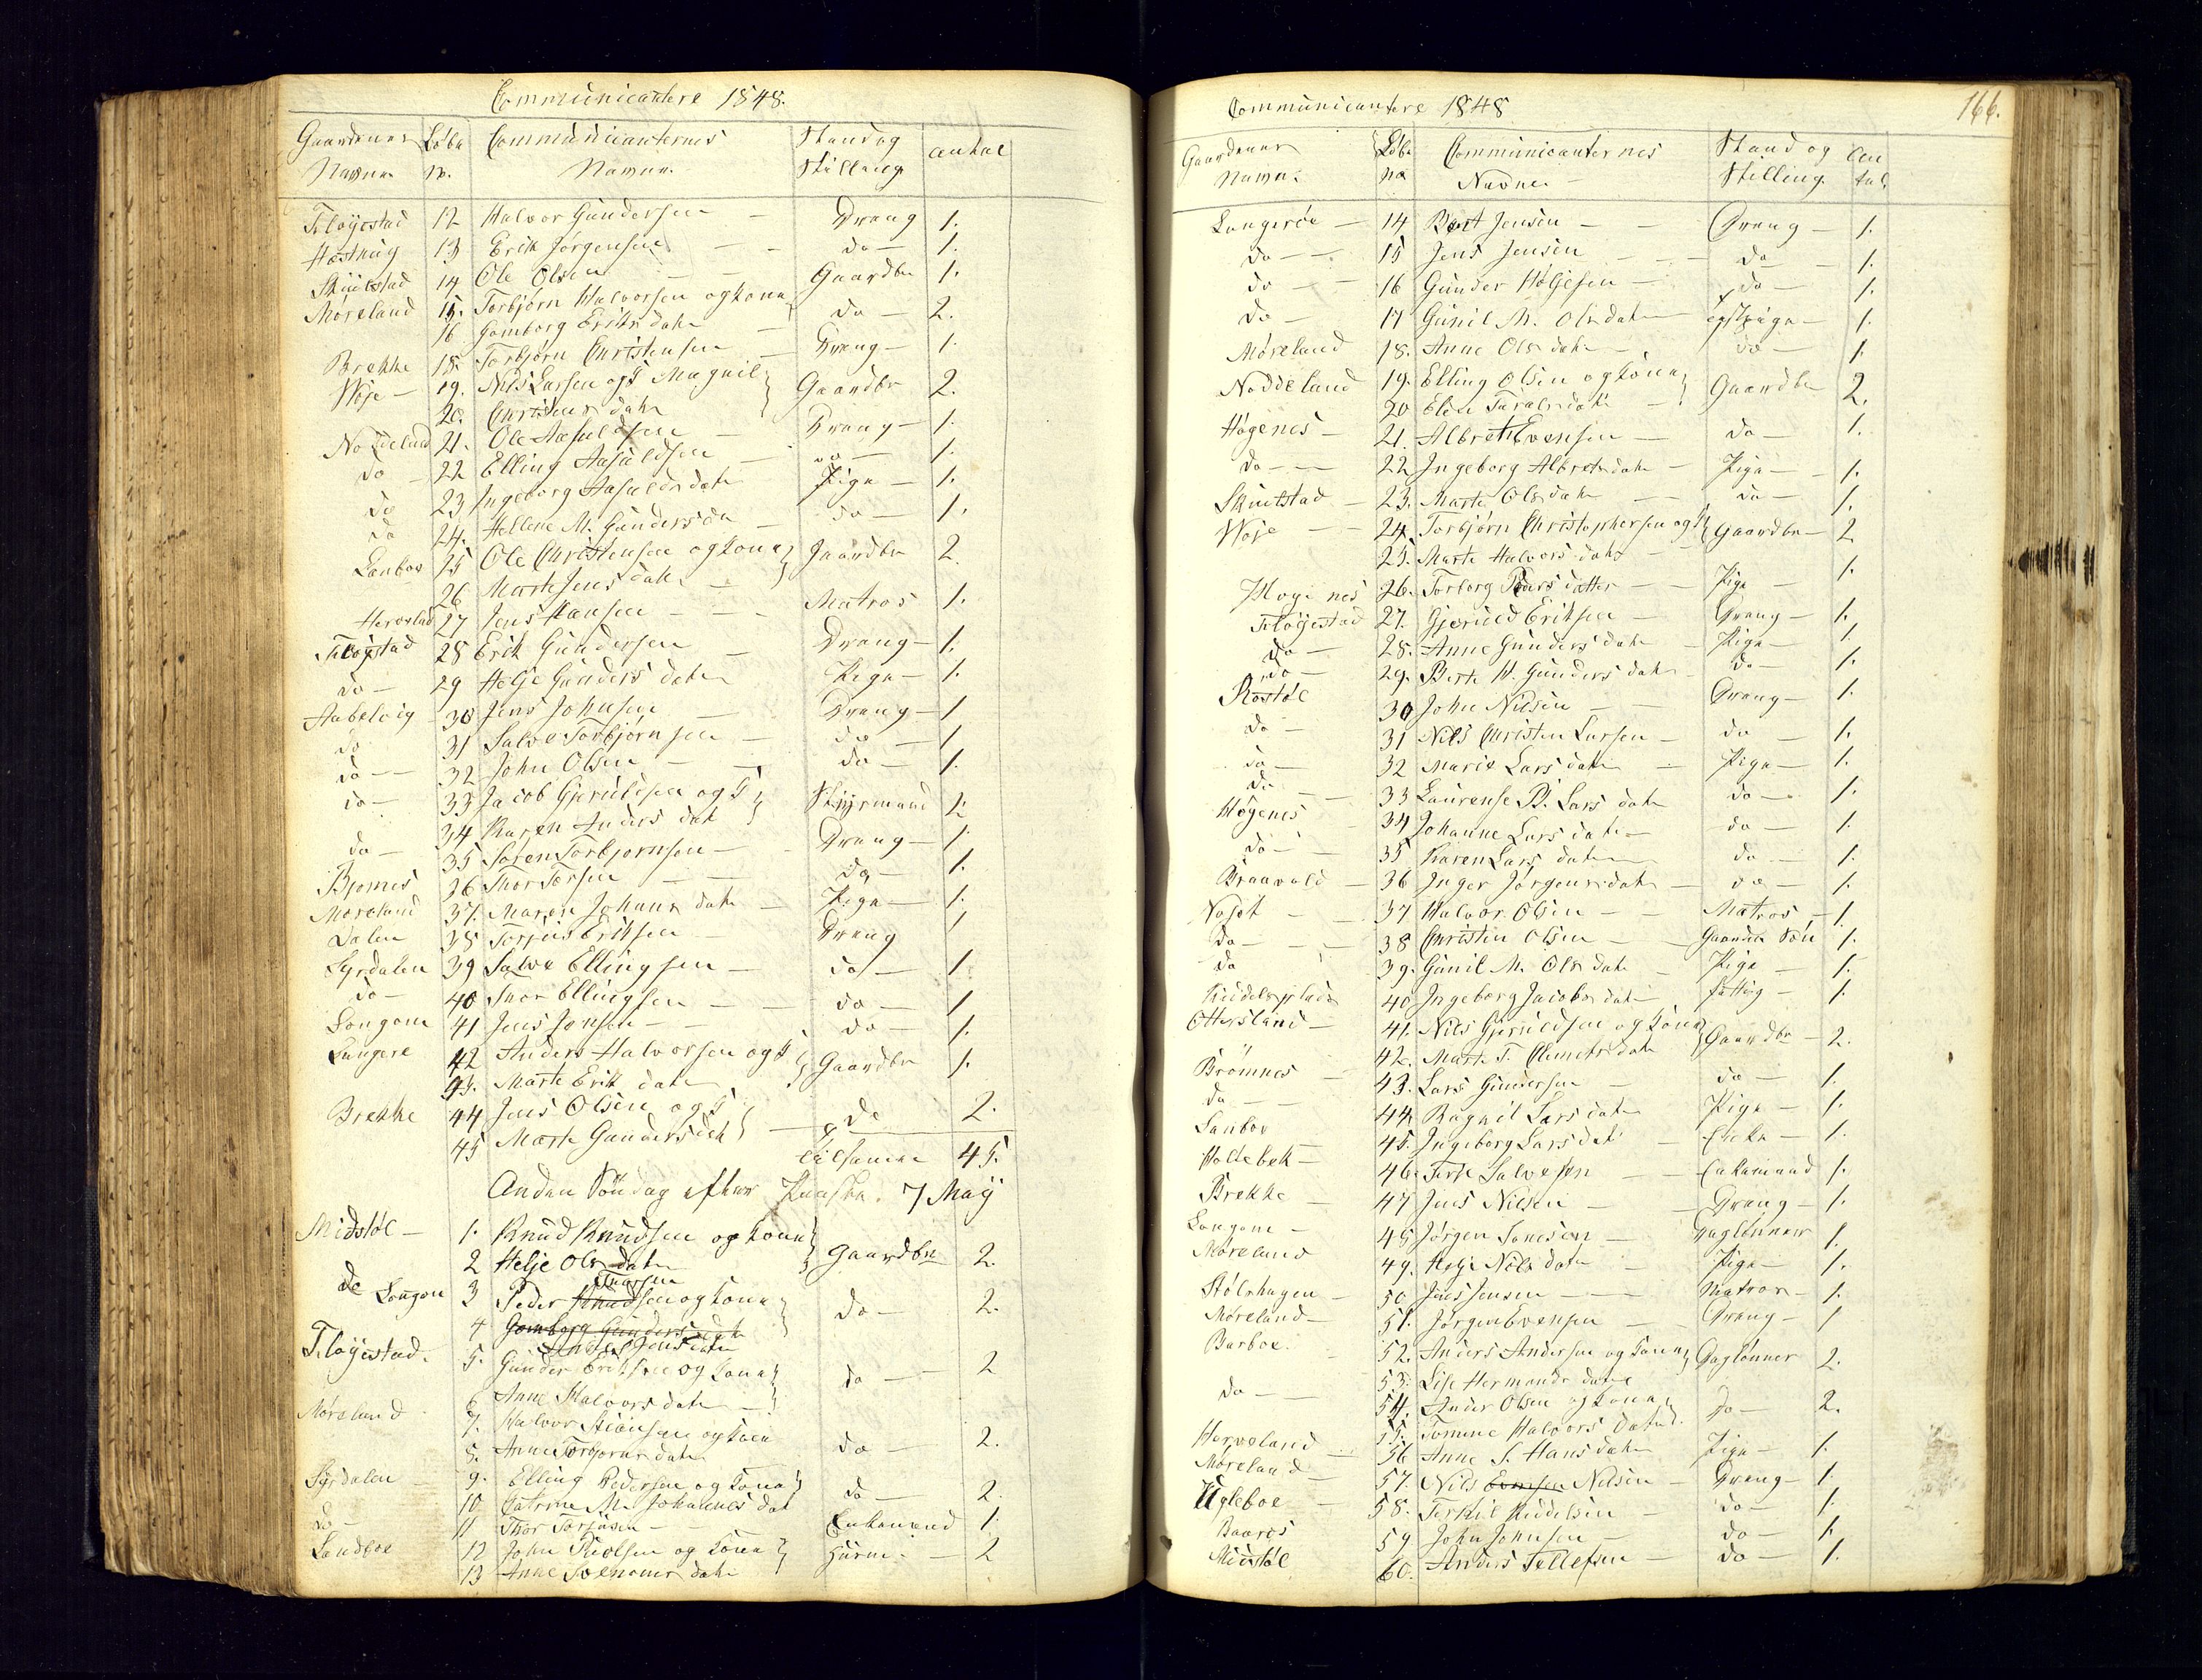 Communicantere 1848.
Gaardenes Løbe Communicanternes Stand og antal
Navne. n. Navne. Stilling
Fløgstad 12 Halvor Gundersen — Dreng 1.
Hæstnæg 13 Erik Jørgensen — — do — 1.
Skudstad 14 Ole Olsen — — Gaardbr 1.
Møreland 15. Torbjørn Halvorsen og Kone do — 2.
16 Gomborg Eriksdatr —
Brekke 18. Torbjørn Christensen — Dreng — 1.
Woje — 19. Nils Larsen og K Magnil Gaardbr 2.
20. Christensdatr
Noddeland 21. Ole Aasuldsen — Dreng — 1.
do — 22 Elling Aasuldsen — do — 1.
do 23 Ingeborg Aasulds datr Pige — 1.
do 24. Hellene M. Gundersda — do — 1.
Lanboe 25 Ole Christensen og Kone Gaardbr 2.
26 Marte Jens datr —
27 Jens Hansen — — Matros 1.
Fløgstad 28 Erik Gundersen — Dreng — 1.
do — 29 Helje Gunders datr Pige — 1.
Aabelvig — 30 Jens Johnsen — Dreng — 1
do 31 Salve Torbjørnsen — do — 1
do — 32 John Olsen — — do — 1.
do — 33 Jacob Gjeruldsen og K Styrmand 2
34 Karen Anders dat
do — 35 Søren Torbjørnsen — Dreng — 1.
Bjornes 36 Thor Torsen — — do — 1.
Møreland 37. Maren Johans datr — Pige — 1.
Dalen 38 Torjus Eriksen — Dreng 1
Syrdalen 39 Salve Ellingsen — do — 1.
do — 40 Thor Ellingsen — — do — 1
Longom 41 Jens Jensen — — do — 1.
Langerø 42 Anders Halvorsen og K Gaardbr 1.
43. Marte Erik datr
Brekke 44 Jens Olsen og K — do 2.
45 Marte Gundersdatr
tilsamen 45.
Anden Søndag efter Paaske. 7 May
Midstøl — 1. Knud Knudsen og Kone Gaardbr 2.
2 Helje Ols datr
Tharsen
do Longom 3 Peder Knudsen og Kone do — 2.
4 Gomborg Gunders datr
Jensdatr
Fløgstad. 5. Gunder Eriksen og Kone do — 2
6 Anne Halvors datr —
Møreland 7. Halvor Steensen og Kone do — 2.
8. Anne Torbjorns datr
Syrdalen — 9. Elling Pedersen og Kone do — 2.
10 Catrine M. Johannes dat
do — 11 Thor Torjusen — — Enkemand 1.
Landboe 12 John Rielsen og Kone Huusm. — 2
13 Anne datr
Communicantere 1848 166.
Gaardenes Løbe Communicanternes Stand og An
Navne. no Navne. Stilling. tal
Langerøe — 14 Bent Jensen — — Dreng — 1.
do — — 15 Jens Jensen — — do — 1.
do — — 16 Gunder Høljesen — do — 1.
do — 17 Gunil M. Olsdatr — Pige — 1.
Møreland 18. Anne Olsdatr — do — 1.
Noddeland 19. Elling Olsen og Kone Gaardbr 2.
20 Elen Taralsdatr —
Høgenes — 21. Albret Evensen — do — 1.
do — — 22 Ingeborg Albrets datr — Pige — 1.
Skudstad — 23. Marte Ols datr — — do — 1.
Woje — — 24. Torbjørn Christophersen og K Gaardbr — 2
25. Marte Halvors datr —
Høgenes 26. Torborg Lars datter — — Pige — 1.
Fløgestad 27. Gjeruld Eriksen — Dreng — 1.
do — 28. Anne Gunders datr — Pige — 1.
do — 29. Berte H. Gunders datr do — 1.
Røstøl 30 John Nilsen — — Dreng — 1.
do — 31 Nils Christen Larsen — do — 1.
do — 32 Marie Lars datr — Pige — 1.
do — 33 Laurense B. Lars datr do — 1.
Høgenes 34 Johanne Lars datr — do — 1.
do — — 35 Karen Lars datr — do — 1.
Braavold — 36 Inger Jørgens datr — do — 1.
37 Halvor Olsen — — Matros — 1.
do — — 38 Christen Olsen — Gaardm. Søn 1.
do 39. Gunil M. Ols datr — Pige — 1.
40 Ingeborg Jacobs datr — fattig — 1.
Ottersland — 41. Nils Gjeruldsen og Kone Gaardbr — 2.
42. Marte T. Clemets datr
Brømnes — 43. Lars Gundersen — do — 1.
do — — 44. Ragnil Lars datr Pige — 1.
Lanboe 45. Ingeborg Lars dat — Enke — 1.
Holtebek — 46. Terje Salvesen — Enkemand 1.
Brekke — 47 Jens Nilsen — — Dreng — 1.
Longom — 48 Jørgen Tønnesen — Daglønner 1.
Møreland 49. Helje Nils datr — Pige — 1.
Stølehagen — 50 Jens Jensen — — Matros — 1.
Møreland — 51. Jørgen Evensen — Dreng — 1
Barboe. — 52. Anders Andersen og Kone Daglønner 2.
53. Lise Hermands datr
do — — 54. Anders Olsen og Kone do — 2.
55. Tomine Halvors datr.
Herveland — 56 Anne S. Hans datr Pige — 1.
Møreland — 57. Nils Evensen Nilsen — Dreng — 1.
Ugleboe — 58. Terkil Kiddelsen — do — 1.
59 John Johnsen — do — 1.
Midstøl 60. Anders Tellefsen — do — 1.